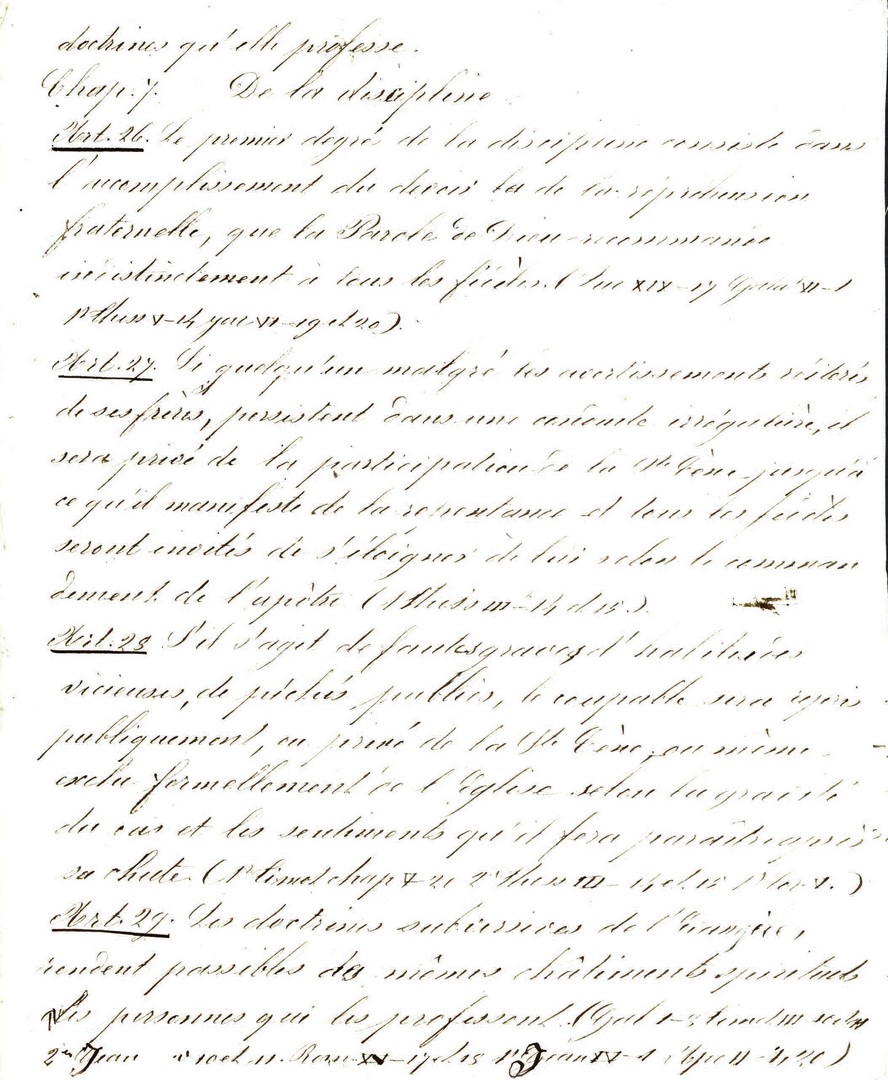 doctrines qu'elle professe.
Chap. 7. De la discipline
Art. 26. Le premier degré de la discipline consiste dans
l'acomplissement du devoir de la répréhension
fraternelle, que la Parole de Dieu recommande
indistinctement à tous les fidèles. (Luc XIX-17 Galat VI-1
1er Thess V-14 Jac V-19 et 20).
Art. 27. Si quelqu'un malgré les avertissements réitérés
de ses frères, persistent dans une conduite irrégulière, il
sera privé de la participation de la Ste Cène jusqu'à
ce qu'il manifeste de la repentance et tous les fidèles
seront invités de s'éloigner de lui selon le comman
dement de l'apôtre (Thess III-14 et 15).
Art. 28 S'il s'agit de fautes graves, d'habitudes
vicieuses, de péchés publics, le coupable sera repris
publiquement, ou privé de la Ste Cène, ou même
exclu formellement de l'Eglise selon la gravité
du cas et les sentiments qu'il fera paraître après
sa chute. (1er Timot chap V-20 2e Thess III-14 et 15 1er Cor V.)
Art. 29. Les doctrines subversives de l'Evangile,
rendent passibles des mêmes châtiments spirituels
les personnes qui les professent. (Gal 1-8 Timot III
2me Jean v 10 et 11. Rom XV-17 et 18 1er Jean IV-1 Apo II-14, 20)